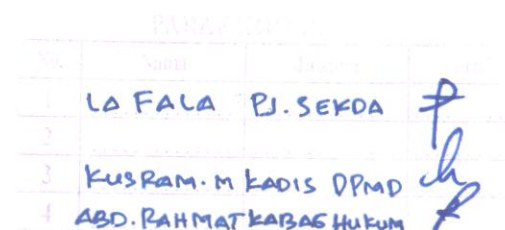 No. Nama
1 LA FALA PJ. SEKDA
2
3 KUSRAM. M KADIS DPMD
4 ABD. RAHMAT KABAG HUKUM